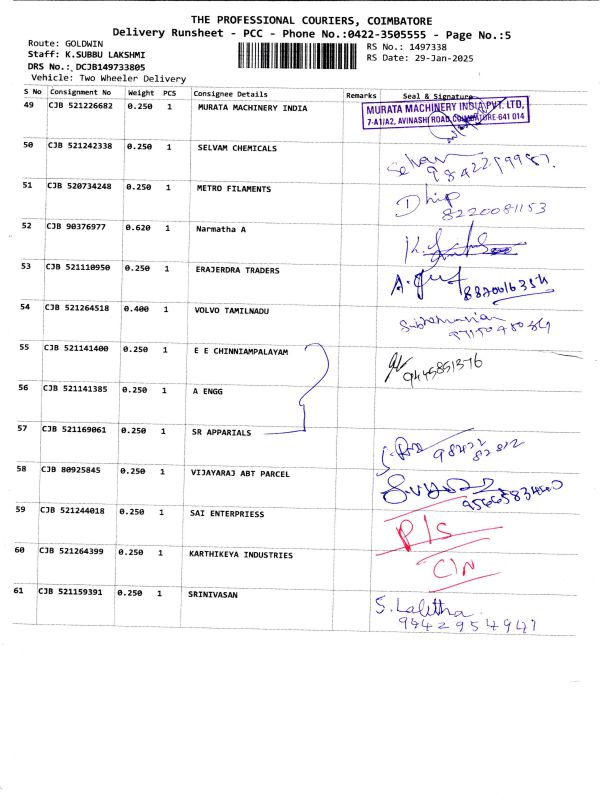 THE PROFESSIONAL COURIERS, COIMBATORE
Delivery Runsheet - PCC - Phone No.:0422-3505555 - Page No.:5
Route: GOLDWIN
Staff: K.SUBBU LAKSHMI
DRS No.: DCJB149733805
Vehicle: Two Wheeler Delivery
RS No.: 1497338
RS Date: 29-Jan-2025
S No Consignment No Weight PCS Consignee Details Remarks Seal & Signature
49 CJB 521226682 0.250 1 MURATA MACHINERY INDIA
MURATA MACHINERY INDIA PVT. LTD,
7-A1/A2, AVINASHI ROAD, COIMBATORE-641 014
50 CJB 521242338 0.250 1 SELVAM CHEMICALS
51 CJB 520734248 0.250 1 METRO FILAMENTS
8220081153
52 CJB 90376977 0.620 1 Narmatha A
53 CJB 521110950 0.250 1 ERAJERDRA TRADERS
54 CJB 521264518 0.400 1 VOLVO TAMILNADU
55 CJB 521141400 0.250 1 E E CHINNIAMPALAYAM
9445851376
56 CJB 521141385 0.250 1 A ENGG
57 CJB 521169061 0.250 1 SR APPARIALS
58 CJB 80925845 0.250 1 VIJAYARAJ ABT PARCEL
59 CJB 521244018 0.250 1 SAI ENTERPRIESS P/S
60 CJB 521264399 0.250 1 KARTHIKEYA INDUSTRIES C/N
61 CJB 521159391 0.250 1 SRINIVASAN S. Lalitha
9442954941